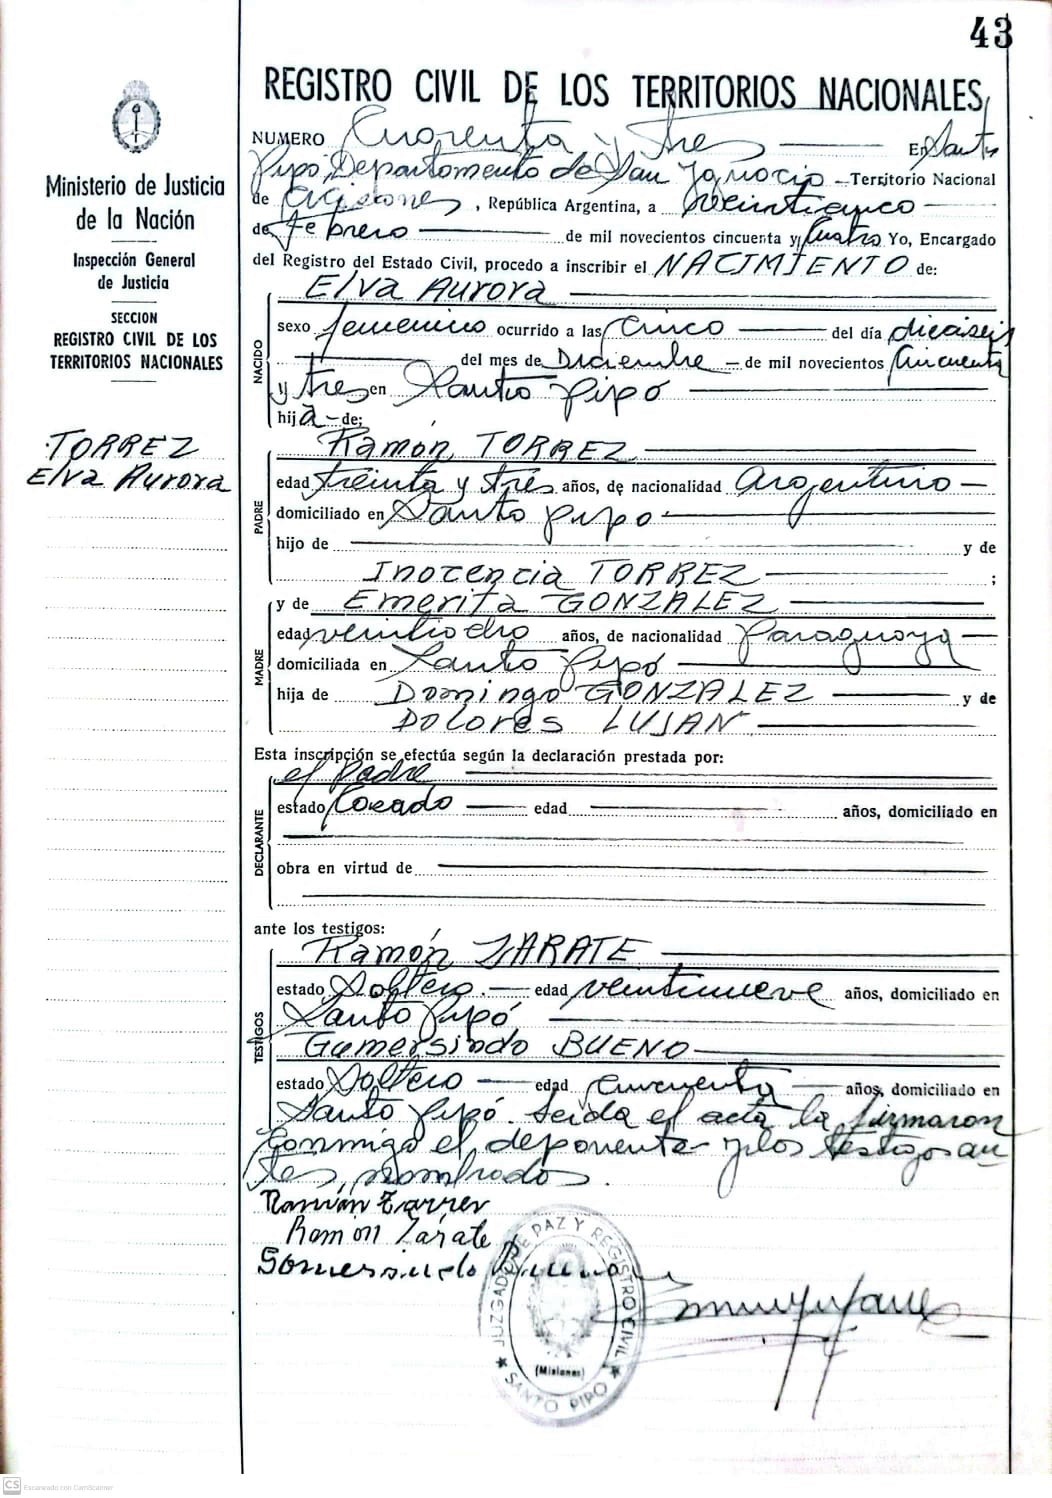 43
REGISTRO CIVIL DE LOS TERRITORIOS NACIONALES
NUMERO Cuarenta y tres En Santo
Pipo, Departamento de San Ignacio Territorio Nacional
de Misiones, República Argentina, a veinticinco
de febrero de mil novecientos cincuenta y Cuatro Yo, Encargado
del Registro del Estado Civil, procedo a inscribir el NACIMIENTO de:
Ministerio de Justicia
de la Nación
Inspección General
de Justicia
SECCION
REGISTRO CIVIL DE LOS
TERRITORIOS NACIONALES
TORREZ
Elva Aurora
NACIDO
Elva Aurora
sexo femenino ocurrido a las Cinco del día dieciseis
del mes de Diciembre de mil novecientos Cincuenta
y tres en Santo Pipó
hija de:
PADRE
Ramón TORREZ
edad treinta y tres años, de nacionalidad Argentino
domiciliado en Santo Pipo
hijo de y de
Inocencia TORREZ ;
MADRE
y de Emerita GONZALEZ
edad veintiocho años, de nacionalidad Paraguaya
domiciliada en Santo Pipó
hija de Domingo GONZALEZ y de
DOLORES LUJAN
Esta inscripción se efectúa según la declaración prestada por:
DECLARANTE
el Padre
estado Casado edad años, domiciliado en
obra en virtud de
ante los testigos:
TESTIGOS
Ramón ZARATE
estado Soltero. edad veintinueve años, domiciliado en
Santo Pipó
Gumersindo BUENO
estado Soltero edad cincuenta años, domiciliado en
Santo Pipó. Leida el acta la firmaron
conmigo el deponente y los testigos an
tes nombrados.
Ramón Zarate
JUZGADO DE PAZ Y REGISTRO CIVIL
(Misiones)
SANTO PIPO
CS Escaneado con CamScanner